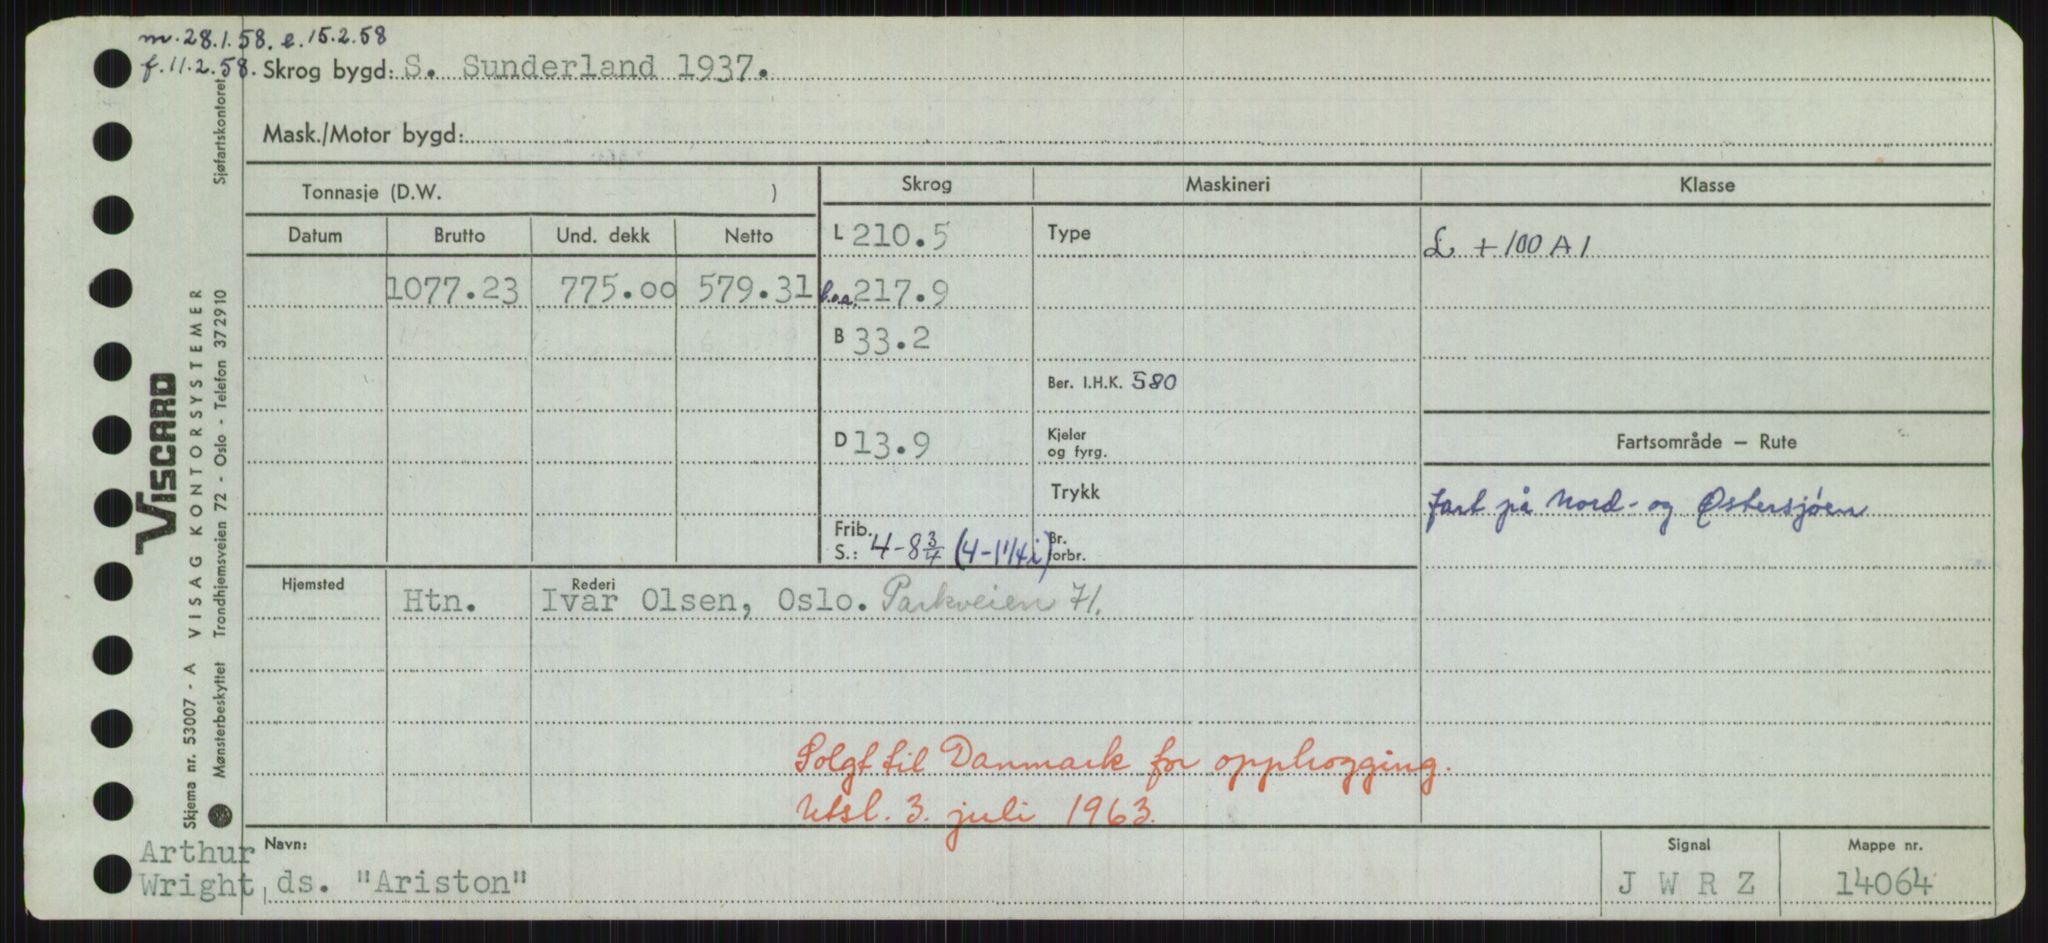 m. 28.1.58. e. 15.2.58
f. 11.2.58.
Skrog bygd: S. Sunderland 1937.
Mask./Motor bygd:
Tonnasje (D.W. )
Skrog
Maskineri
Klasse
Datum
Brutto
Und. dekk
Netto
L 210.5
Type
L +100 A 1
1077.23
775.00
579.31
l.o.a. 217.9
B 33.2
Ber. I.H.K. 580
D 13.9
Kjeler
og fyrg.
Fartsområde – Rute
Trykk
fart på Nord- og Østersjøen
Frib.
S.: 4-8 3/4 (4-11 1/4 i)
Br.
forbr.
Hjemsted
Htn.
Rederi
Ivar Olsen, Oslo. Parkveien 71.
Solgt til Danmark for opphogging.
Utsl. 3. juli 1963.
Arthur
Wright,
Navn:
ds. "Ariston"
Signal
J W R Z
Mappe nr.
14064
VISCARD
VISAG KONTORSYSTEMER
Skjema nr. 53007 - A
Sjøfartskontoret
Trondhjemsveien 72 - Oslo - Telefon 372910
Mønsterbeskyttet